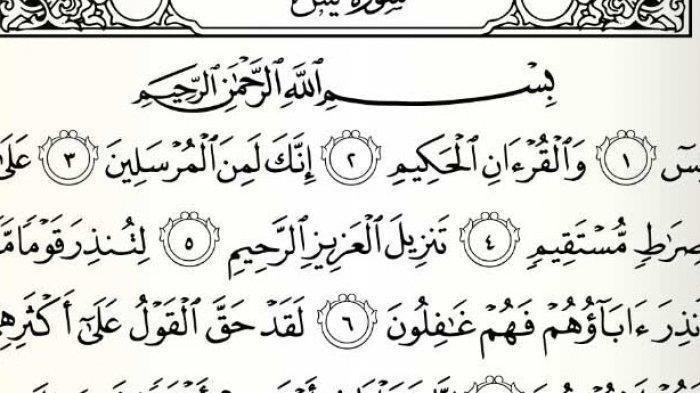 سورة يس
بِسْمِ ٱللَّهِ ٱلرَّحْمَٰنِ ٱلرَّحِيمِ
يسٓ ١ وَٱلْقُرْءَانِ ٱلْحَكِيمِ ٢ إِنَّكَ لَمِنَ ٱلْمُرْسَلِينَ ٣ عَلَىٰ
صِرَٰطٍ مُّسْتَقِيمٍ ٤ تَنزِيلَ ٱلْعَزِيزِ ٱلرَّحِيمِ ٥ لِتُنذِرَ قَوْمًا مَّا
أُنذِرَ ءَابَآؤُهُمْ فَهُمْ غَٰفِلُونَ ٦ لَقَدْ حَقَّ ٱلْقَوْلُ عَلَىٰٓ أَكْثَرِهِمْ